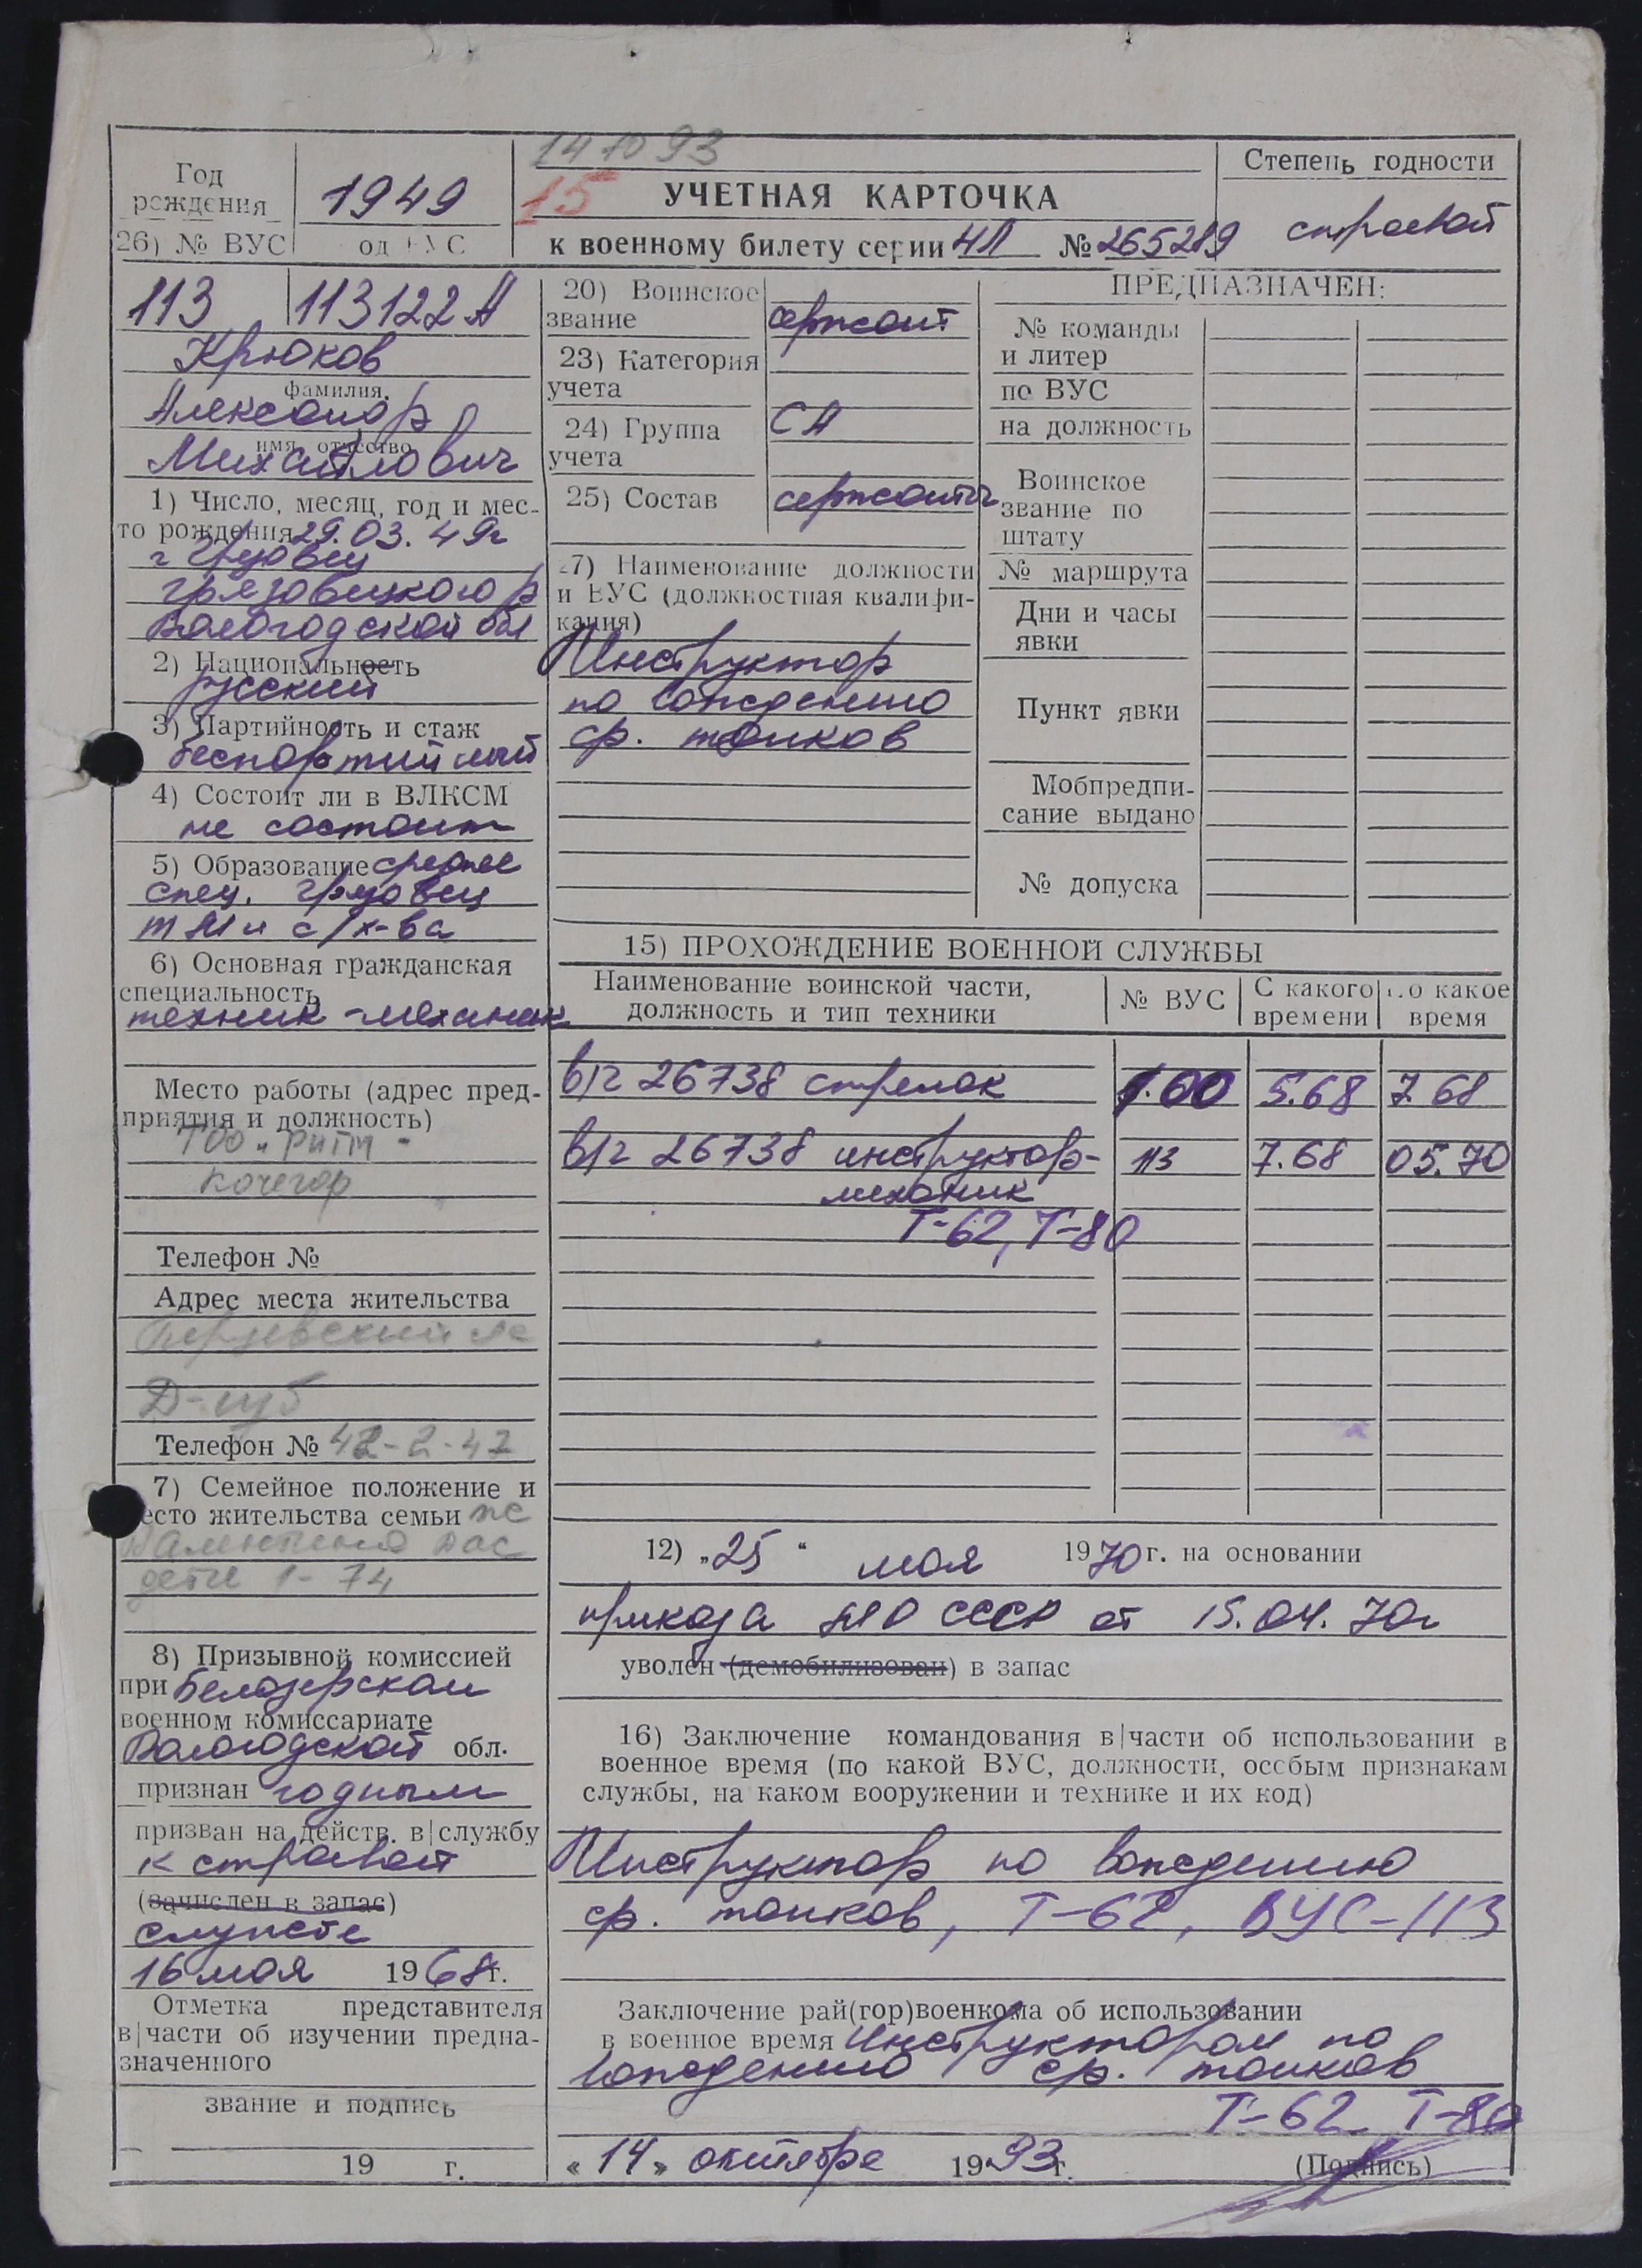 14 10 93
Год
рождения
1949
15
УЧЕТНАЯ КАРТОЧКА
Степень годности
26) № ВУС
од ВУС
к военному билету серии НЛ № 265289
строевой
113
113122А
Крюков
фамилия
Александр
имя, отчество
Михайлович
1) Число, месяц, год и мес-
то рождения 29.03.49г
г Грязовец
Грязовецкого р
Вологодской обл
2) Национальность
русский
3) Партийность и стаж
беспартийный
4) Состоит ли в ВЛКСМ
не состоит
5) Образование среднее
спец. Грязовец
с/х-ва
6) Основная гражданская
специальность
техник-механик
Место работы (адрес пред-
приятия и должность)
ТОО "Ритм"
кочегар
Телефон №
Адрес места жительства
Телефон № 42-2-47
7) Семейное положение и
есто жительства семьи
Валентина
дети 1-74
8) Призывной комиссией
при Белозерском
военном комиссариате
Вологодской обл.
признан годным
призван на действ. в|службу
к строевой
(зачислен в запас)
службе
16 мая 1968г.
Отметка представителя
в|части об изучении предна-
значенного
звание и подпись
19 г.
20) Воинское
звание
сержант
23) Категория
учета
24) Группа
учета
СА
25) Состав
сержанты
27) Наименование должности
и ВУС (должностная квалифи-
кация)
Инструктор
по вождению
ср. танков
ПРЕДНАЗНАЧЕН:
№ команды
и литер
по ВУС
на должность
Воинское
звание по
штату
№ маршрута
Дни и часы
явки
Пункт явки
Мобпредпи-
сание выдано
№ допуска
15) ПРОХОЖДЕНИЕ ВОЕННОЙ СЛУЖБЫ
Наименование воинской части,
должность и тип техники
№ ВУС
С какого
времени
по какое
время
в/ч 26738 стрелок
.00
5.68
7.68
в/ч 26738 инструктор-
113
7.68
05.70
механик
Т-62, Т-80
12) „25“ мая 1970 г. на основании
приказа МО СССР от 15.04.70г
уволен (демобилизован) в запас
16) Заключение командования в|части об использовании в
военное время (по какой ВУС, должности, особым признакам
службы, на каком вооружении и технике и их код)
Инструктор по вождению
ср. танков, Т-62, ВУС-113
Заключение рай(гор)военкома об использовании
в военное время Инструктором по
вождению ср. танков
Т-62 Т-80
«14» октября 1993г.
(Подпись)